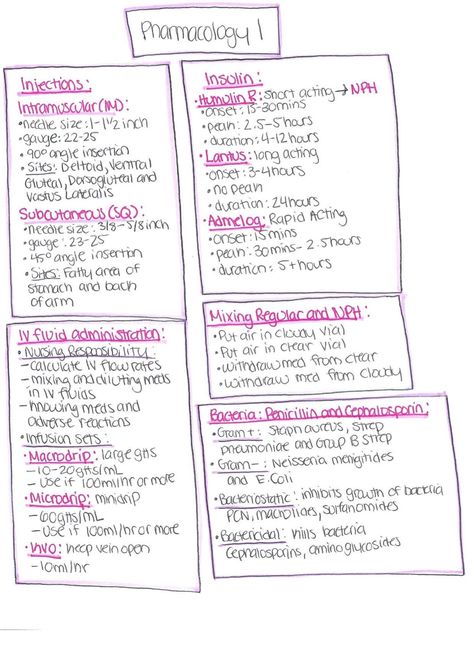 Pharmacology 1
Injections:
Intramuscular (IM):
•needle size: 1-1 1/2 inch
•gauge: 22-25
•90° angle insertion
•Sites: Deltoid, Ventral
Gluteal, Dorsogluteal and
Vastus Lateralis
Subcutaneous (SQ):
•needle size: 3/8-5/8 inch
•gauge: 23-25
•45° angle insertion
•Sites: Fatty area of
stomach and back
of arm
IV fluid administration:
•Nursing Responsibility:
-calculate IV flow rates
-mixing and diluting meds
in IV fluids
-knowing meds and
adverse reactions
•Infusion sets:
•Macrodrip: large gtts
-10-20gtts/mL
-Use if 100ml/hr or more
•Microdrip: minidrip
-60gtts/mL
-Use if 100ml/hr or more
•KVO: keep vein open
-10ml/hr
Insulin:
•Humulin R: short acting → NPH
•onset: 15-30mins
•peak: 2.5-5 hours
•duration: 4-12 hours
•Lantus: long acting
•onset: 3-4 hours
•no peak
•duration: 24 hours
•Admelog: Rapid Acting
•onset: 15 mins
•peak: 30mins-2.5 hours
•duration: 5+ hours
Mixing Regular and NPH:
•Put air in cloudy vial
•Put air in clear vial
•withdraw med from clear
•withdraw med from cloudy
Bacteria: Penicillin and Cephalosporin:
•Gram+: Staph aureus, Strep
pneumoniae and Group B Strep
•Gram-: Neisseria menigitides
and E.Coli
•Bacteriostatic: inhibits growth of bacteria
PCN, macrolides, sulfanomides
•Bactericidal: kills bacteria
Cephalosporins, aminoglycosides